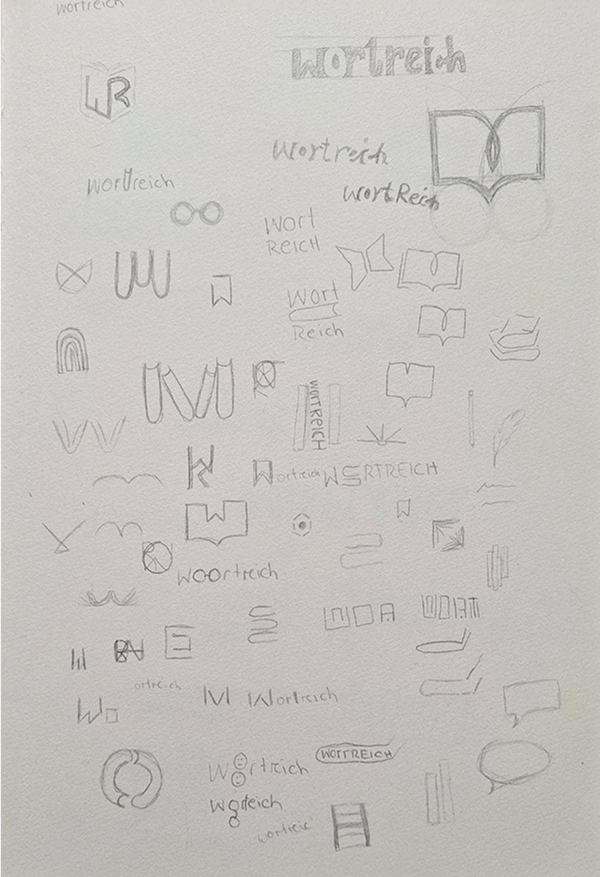 wortreich
wortreich
WR
Wortreich
wortReich
wortreich
Wort
REICH
W
Wort
Reich
WORTREICH
Wortreich
WERTREICH
W
W
WOOrtreich
WOA
WORT
ortreich
Wo
M
Wortreich
Wortreich
WORTREICH
wortreic